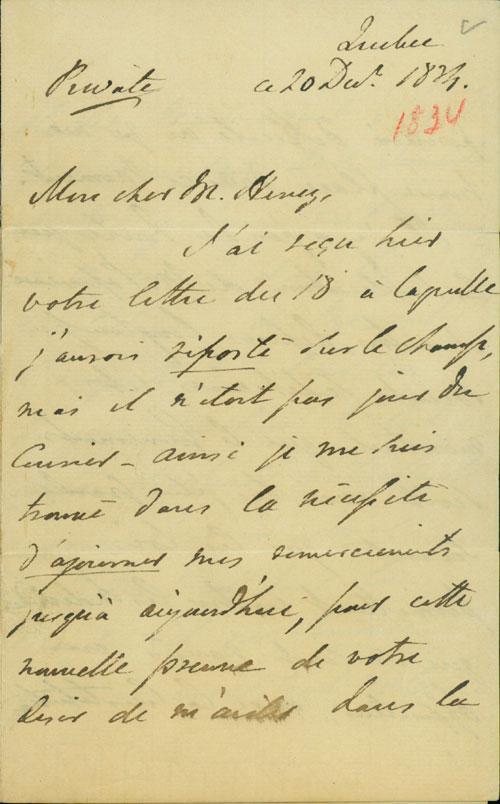 Quebec
Private ce 20 Decr. 1834.
1834
Mon cher Mr. Heney,
J'ai reçu hier
votre lettre du 18 à laquelle
j'aurois riposté sur le champ,
mais il n'étoit pas jour du
Courier - ainsi je me suis
trouvé dans la nécessité
d'ajourner mes remerciements
jusqu'à aujourd'hui, pour cette
nouvelle preuve de votre
desir de m'aider dans la